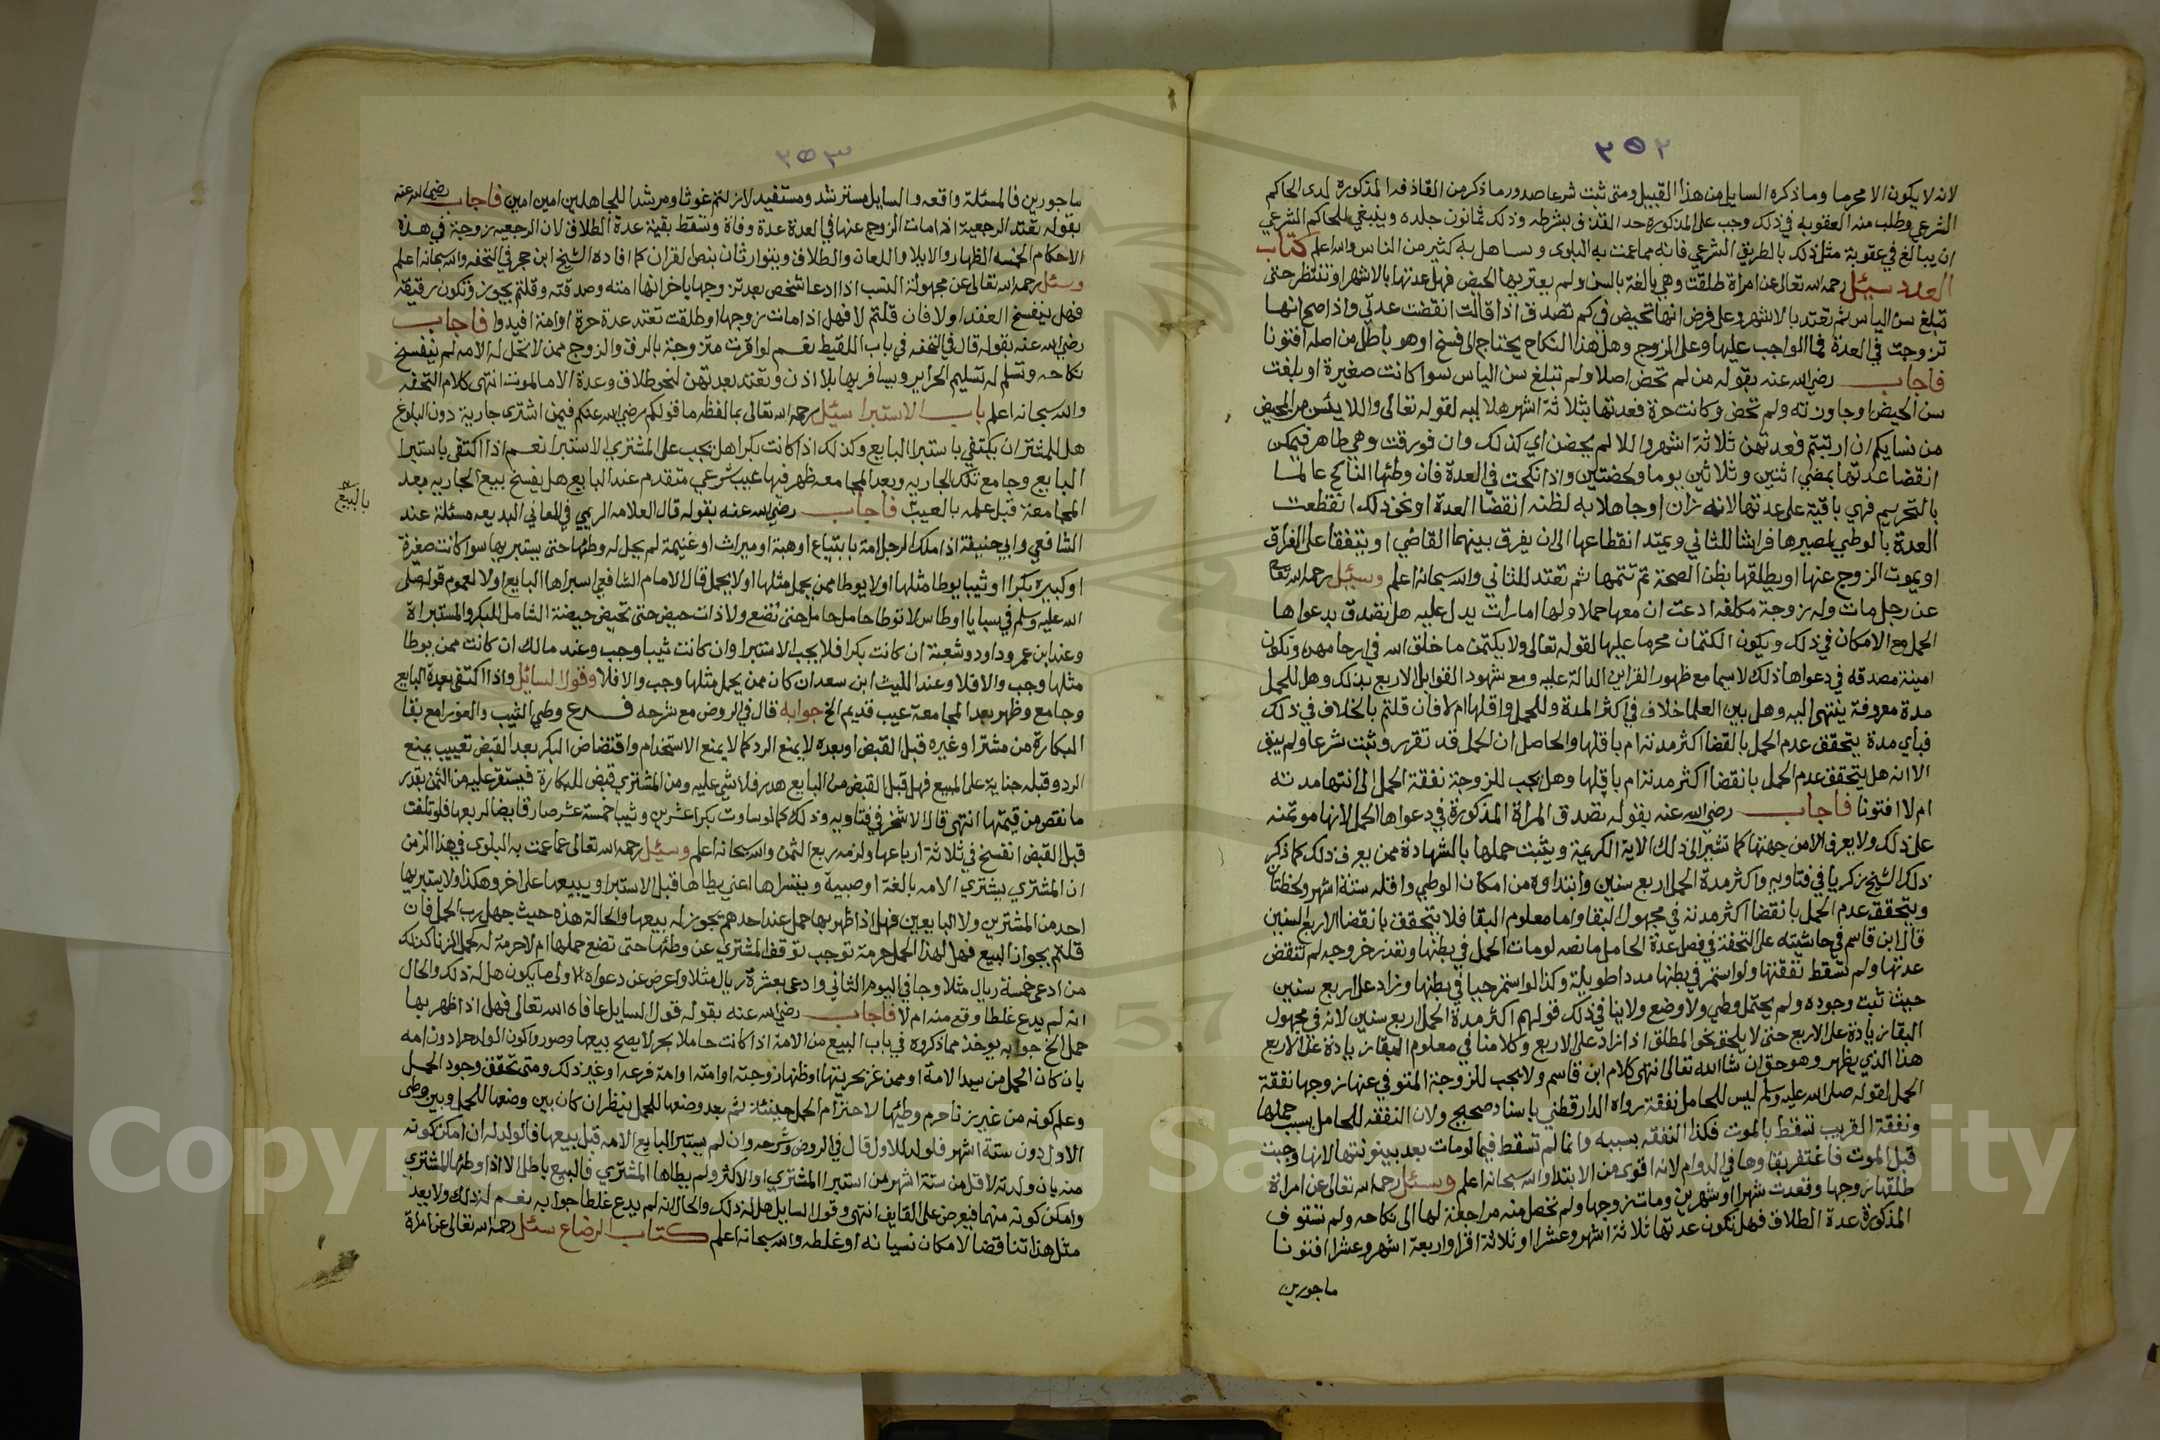 ٢٥٢
لانه لا يكون الا محرما وما ذكره السايل من هذا القبيل ومتى ثبت شرعا صدور ما ذكر من القاذفه المذكورة لدى الحاكم
الشرعي وطلب منه العقوبه في ذلك وجب على المذكوره حد القذف بشرطه وذلك ثمانون جلده وينبغي للحاكم الشرعي
ان يبالغ في عقوبة مثل ذلك بالطريق الشرعي فانه مما عمت به البلوى وتساهل به كثير من الناس والله اعلم كتاب
العدد سيئل رحمه الله تعالى عن امراة طلقت وهي بالغة بالسن ولم يعتريها الحيض فهل عدتها بالاشهر او تنتظر حتى
تبلغ سن الياس ثم تعتد بالاشهر وعلى فرض انها تحيض في كم تصدق اذا قالت انقضت عدتي واذا صح انها
تزوجت في العدة فما الواجب عليها وعلى المزوج وهل هذا النكاح يحتاج الى فسخ او هو باطل من اصله افتونا
فاجاب رضي الله عنه بقوله من لم تحض اصلا ولم تبلغ سن الياس سوا كانت صغيرة او بلغت
سن الحيض او جاوزته ولم تحض وكانت حرة فعدتها بثلاثة اشهر هلاليه لقوله تعالى واللايئسن من المحيض
من نسايكم ان ارتبتم فعدتهن ثلاثة اشهر واللا لم يحضن اي كذلك وان فورقت وهي طاهر فيمكن
انقضا عدتها بمضي اثنين وثلاثين يوما ولحضتين واذا نكحت في العدة فان وطئها الناكح عالما
بالتحريم فهي باقية على عدتها لانه زان او جاهلا به لظنه انقضا العدة او نحو ذلك انقطعت
العدة بالوطي لمصيرها فراشا للثاني ويمتد انقطاعها الى ان يفرق بينهما القاضي او يتفقا على الفراق
او يموت الزوج عنها او يطلقها بظن الصحة ثم تتمها ثم تعتد للثاني والله سبحانه اعلم وسيئل رحمه الله تعالى
عن رجل مات وله زوجة مكلفه ادعت ان معها حملا ولها امارات يدل عليه هل تصدق بدعواها
الحمل مع الامكان في ذلك ويكون الكتمان محرما عليها لقوله تعالى ولا يكتمن ما خلق الله في ارحامهن وتكون
امينة مصدقه في دعواها ذلك لاسيما مع ظهور القراين الدالة عليه ومع شهود القوابل الاربع بذلك وهل للحمل
مدة معروفة ينتهي اليه وهل بين العلما خلاف في اكثر المدة وللحمل واقلها ام لا فان قلتم بالخلاف في ذلك
فباي مدة يتحقق عدم الحمل بالقضا اكثر مدته ام باقلها والحاصل ان الحمل قد تقرر وثبت شرعا ولم يبق
الا انه هل يتحقق عدم الحمل بانقضا اكثر مدته ام باقلها وهل يجب للزوجة نفقة الحمل الى انتها مدته
ام لا افتونا فاجاب رضي الله عنه بقوله تصدق المراة المذكورة في دعواها الحمل لانها موتمنه
على ذلك ولا يعرف الا من جهتها كما تشير الى ذلك الاية الكريمة ويثبت حملها بالشهادة ممن يعرف ذلك كما ذكر
ذلك الشيخ زكريا في فتاويه واكثر مدة الحمل اربع سنين وابتداوه من امكان الوطي واقله ستة اشهر ولحظتان
ويتحقق عدم الحمل بانقضا اكثر مدته في مجهول البقا واما معلوم البقا فلا يتحقق بانقضا الاربع السنين
قال ابن قاسم في حاشيته على التحفة في فصل عدة الحامل ما نصه لو مات الحمل في بطنها وتعذر خروجه لم تنقض
عدتها ولم تسقط نفقتها ولو استمر في بطنها مددا طويلة وكذا لو استمر حيا في بطنها وزاد على اربع سنين
حيث ثبت وجوده ولم يحتمل وطي ولا وضع ولا ينافي ذلك قولهم اكثر مدة الحمل اربع سنين لانه في مجهول
البقا زيادة على الاربع حتى لا يلحق نحو المطلق اذا زاد على الاربع وكلامنا في معلوم البقا زيادة على الاربع
هذا الذي يظهر وهو حق ان شا الله تعالى انتهى كلام ابن قاسم ولا يجب للزوجة المتوفي عنها زوجها نفقة
الحمل لقوله صلى الله عليه وسلم ليس للحامل نفقة رواه الدارقطني باسناد صحيح ولان النفقه للحامل بسبب حملها
ونفقة القريب تسقط بالموت فكذا النفقه بسببه وانما لم تسقط فيما لو مات بعد بينونتها لانها وجبت
قبل الموت فاغتفر بقاوها في الدوام لانه اقوى من الابتدا والله سبحانه اعلم وسيئل رحمه الله تعالى عن امراة
طلقها زوجها وقعدت شهرا او شهرين ومات زوجها ولم تحصل منه مراجعة لها الى نكاحه ولم تستوف
المذكورة عدة الطلاق فهل تكون عدتها ثلاثة اشهر وعشرا او ثلاثة اقرا واربعة اشهر وعشرا افتونا
ماجورين
٢٥٣
ماجورين فالمسئلة واقعه والسايل مسترشد ومستفيد لازلتم غوثا ومرشدا للجاهلين امين امين فاجاب رضي الله عنه
بقوله تعتد الرجعية اذا مات الزوج عنها في العدة عدة وفاة وتسقط بقية عدة الطلاق لان الرجعيه زوجة في هذه
الاحكام الخمسه الظهار والايلا واللعان والطلاق ويتوارثان بنص القران كما افاده الشيخ ابن حجر في التحفه والله سبحانه اعلم
وسئل رحمه الله تعالى عن مجهولة النسب اذا ادعا شخص بعد تزوجها باخر انها امته وصدقته وقلتم يجوز وتكون رقيقة
فهل ينفسخ العقد او لا فان قلتم لا فهل اذا مات زوجها او طلقت تعتد عدة حرة او امة افيدوا فاجاب
رضي الله عنه بقوله قال في التحفه في باب اللقيط نعم لو اقرت متزوجة بالرق والزوج ممن لا تحل له الامه لم ينفسخ
نكاحه وتسلم له تسليم الحراير ويسافر بها بلا اذن وتعتد بعدتهن لنحو طلاق وعدة الاما لموت انتهى كلام التحفه
والله سبحانه اعلم باب الاستبرا سئل رحمه الله تعالى بما لفظه ما قولكم رضي الله عنكم فيمن اشترى جارية دون البلاغ
هل للمشتر ان يكتفي باستبرا البايع وكذلك اذا كانت بكرا هل يجب على المشتري الاستبرا نعم اذا اكتفى باستبرا
البايع وجامع تلك الجاريه وبعد المجامعه ظهر فيها عيب شرعي متقدم عند البايع هل يفسخ بيع الجاريه بعد
المجامعة قبل علمه بالعيب فاجاب رضي الله عنه بقوله قال العلامه الريمي في المعاني البديعه مسئلة عند
بالبيع
الشافعي وابي حنيفة اذا ملك الرجل امة بابتياع او هبة او ميراث او غنيمة لم يحل له وطئها حتى يستبريها سوا كانت صغيرة
او كبيره بكرا او ثيبا يوطا مثلها او لا يوطا ممن يحمل مثلها او لا يحمل قال الامام الشافعي استبراها البايع او لا لعموم قوله صلى
الله عليه وسلم في سبايا اوطاس لا توطا حامل حتى تضع ولا ذات حيض حتى تحيض حيضة الشامل للبكر والمستبراة
وعند ابن عمر وداود وشعبة ان كانت بكرا فلا يجب الاستبرا وان كانت ثيبا وجب وعند مالك ان كانت ممن يوطا
مثلها وجب والافلا وعند الليث ابن سعد ان كان ممن يحمل مثلها وجب والافلا وقول السايل واذا اكتفى بعدة البايع
وجامع وظهر بعد المجامعة عيب قديم الخ جوابه قال في الروض مع شرحه فرع وطي الثيب والغورا مع بقا
البكارة من مشتر او غيره قبل القبض او بعده لا يمنع الرد كما لا يمنع الاستخدام واقتضاض البكر بعد القبض تعييب يمنع
الرد وقبله جناية على المبيع فهل قبل القبض من البايع هدر فلا شي عليه ومن المشتري قبض للبكارة فيستقر عليه من الثمن بقدر
ما نقص من قيمتها انتهى قال الاشخر في فتاويه وذلك كما لو ساوت بكرا عشرين وثيبا خمسة عشر صار قابضا لربعها فلو تلفت
قبل القبض انفسخ في ثلاثة ارباعها ولزمه ربع الثمن والله سبحانه اعلم وسيئل رحمه الله تعالى عما عمت به البلوى في هذا الزمن
ان المشتري يشتري الامه بالغة او صبية ويتسراها اعني يطاها قبل الاستبرا ويبيعها على اخر وهكذا ولا يستبريها
احد من المشترين ولا البايعين فهل اذا ظهر بها حمل عند احدهم يجوز له بيعها والحالة هذه حيث جهل رب الحمل فان
قلتم بجواز البيع فهل لهذا الحمل حرمة توجب توقف المشتري عن وطئها حتى تضع حملها ام لا حرمة له كحمل الزنا كذلك
من ادعى خمسة ريال مثلا وجا في اليوم الثاني وادعى بعشرة ريال مثلا واعرض عن دعواه الاولى هل يكون هل له ذلك والحال
انه لم يدع غلطا وقع منه ام لا فاجاب رضي الله عنه بقوله قول السايل عافاه الله تعالى فهل اذا ظهر بها
حمل الخ جوابه يوخذ مما ذكروه في باب البيع من الامة اذا كانت حاملا بحر لا يصح بيعها وصوروا كون الولد حرا دون امه
بان كان الحمل من سيد الامة او ممن غر بحريتها او ظنها زوجته او امته او امة فرعه او غير ذلك ومتى تحقق وجود الحمل
وعلم كونه من غير زنا حرم وطئها لاحترام الحمل حينئذ ثم بعد وضعها للحمل ينظر ان كان بين وضعها للحمل وبين وطي
الاول دون ستة اشهر فلولد للاول قال في الروض وشرحه وان لم يستبر البايع الامه قبل بيعها فالولد له ان امكن كونه
منه بان ولدته لاقل من ستة اشهر من استبرا المشتري او الاكثر ولم يطاها المشتري فالبيع باطل الا اذا وطئها المشتري
وامكن كونه منهما فيعرض على القايف انتهى وقول السايل هل له ذلك والحال انه لم يدع غلطا جوابه نعم له ذلك ولا يعد
مثل هذا تناقضا لامكان نسيانه او غلطه والله سبحانه اعلم كتاب الرضاع سئل رحمه الله تعالى عن امراة
Copyright © King Saud University
1957